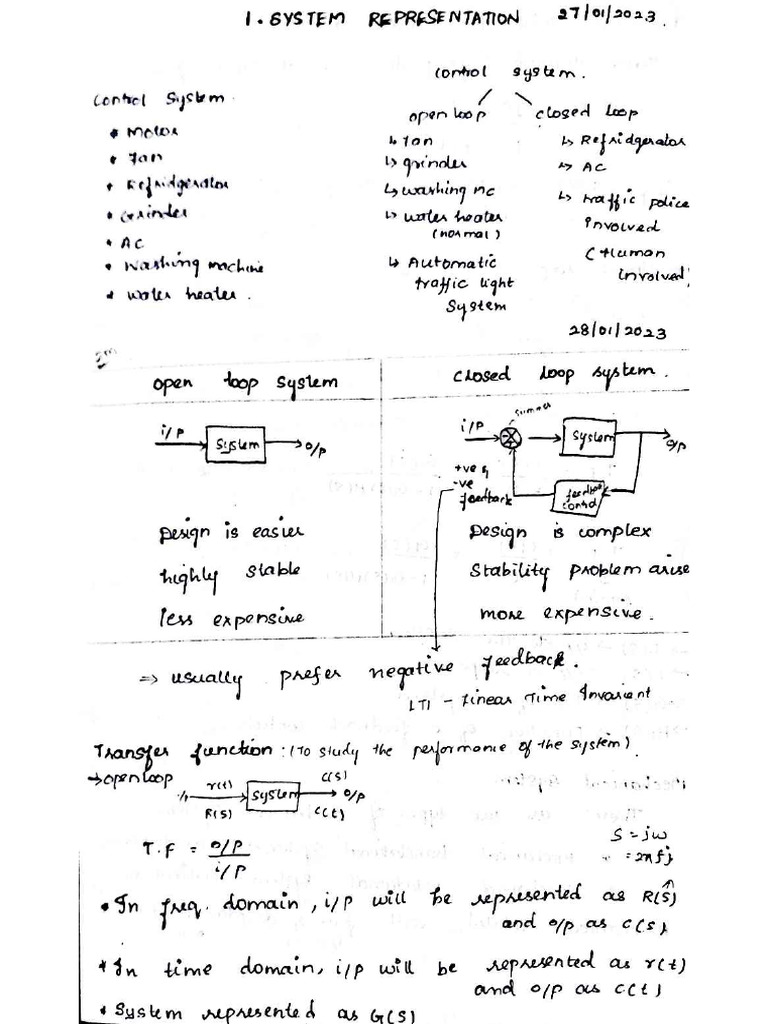 1. SYSTEM REPRESENTATION 27/01/2023.
Control System.
• Motor
• Fan
• Refridgerator
• Grinder
• AC
• Washing machine
• Water heater.
Control System.
open loop
↳ Fan
↳ grinder
↳ washing mc
↳ water heater
(normal)
↳ Automatic
traffic light
System
closed loop
↳ Refridgerator
↳ AC
↳ traffic police
involved
(Human
involved)
28/01/2023
2m
open loop system
closed loop system.
i/P
System
o/p
summer
i/P
System
o/p
+ve &
-ve
feedback
feedback
control
Design is easier
highly stable
less expensive
Design is complex
Stability problem arise
more expensive.
⇒ usually prefer negative feedback.
LTI - Linear Time Invariant
Transfer function: (To study the performance of the system)
→ open loop
r(t)
R(S)
system
C(S)
C(t)
o/p
T.F = o/p
i/p
S = jω
= 2πfj
• In freq. domain, i/p will be represented as R(S)
and o/p as C(S).
• In time domain, i/p will be represented as r(t)
and o/p as C(t)
• System represented as G(S)